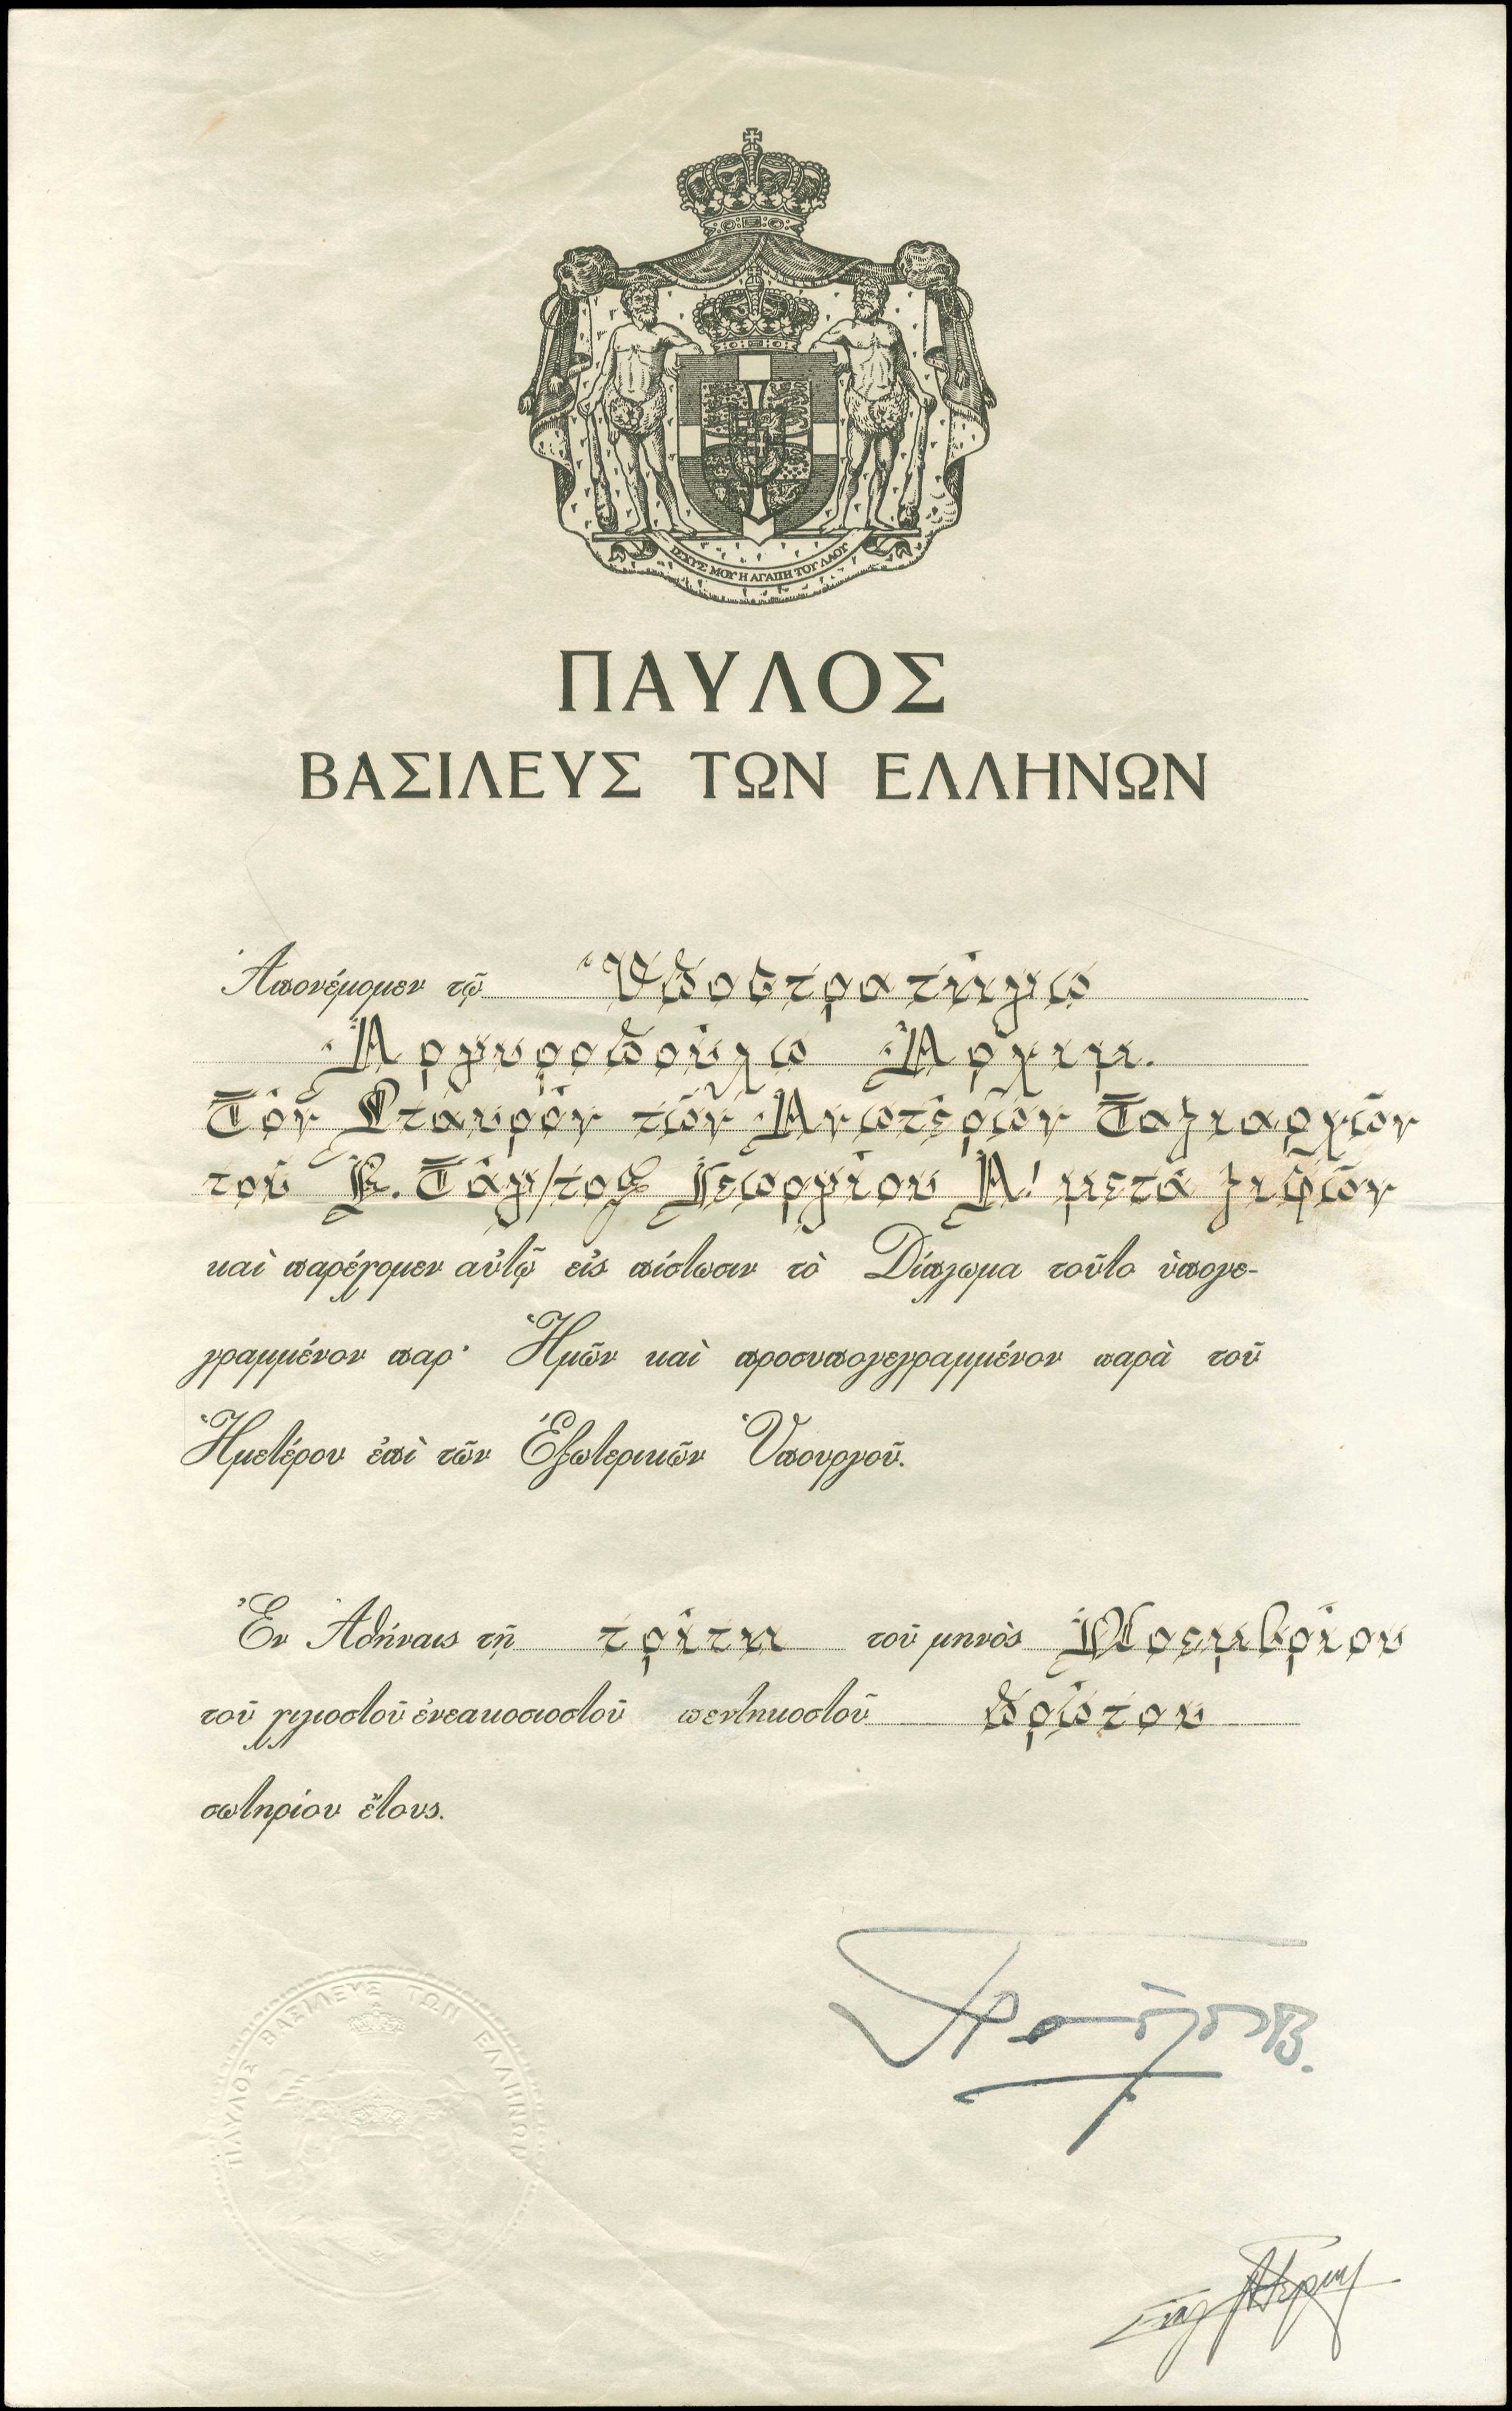 ΙΣΧΥΣ ΜΟΥ Η ΑΓΑΠΗ ΤΟΥ ΛΑΟΥ
ΠΑΥΛΟΣ
ΒΑΣΙΛΕΥΣ ΤΩΝ ΕΛΛΗΝΩΝ
Ἀπονέμομεν τῷ Ὑποστρατήγῳ
Ἀργυροπούλῳ Ἀρχιμ.
Τόν Σταυρόν τῶν Ἀνωτέρων Ταξιαρχῶν
τοῦ Β. Τάγ/τος Γεωργίου Α! μετά ξιφῶν
καὶ παρέχομεν αὐτῷ εἰς πίστωσιν τὸ Δίπλωμα τοῦτο ὑπογε-
γραμμένον παρ' Ἡμῶν καὶ προσυπογεγραμμένον παρὰ τοῦ
Ἡμετέρου ἐπὶ τῶν Ἐξωτερικῶν Ὑπουργοῦ.
Ἐν Ἀθήναις τῇ τρίτῃ τοῦ μηνὸς Νοεμβρίου
τοῦ χιλιοστοῦ ἐνεακοσιοστοῦ πεντηκοστοῦ πρώτου
σωτηρίου ἔτους.
ΠΑΥΛΟΣ ΒΑΣΙΛΕΥΣ ΤΩΝ ΕΛΛΗΝΩΝ